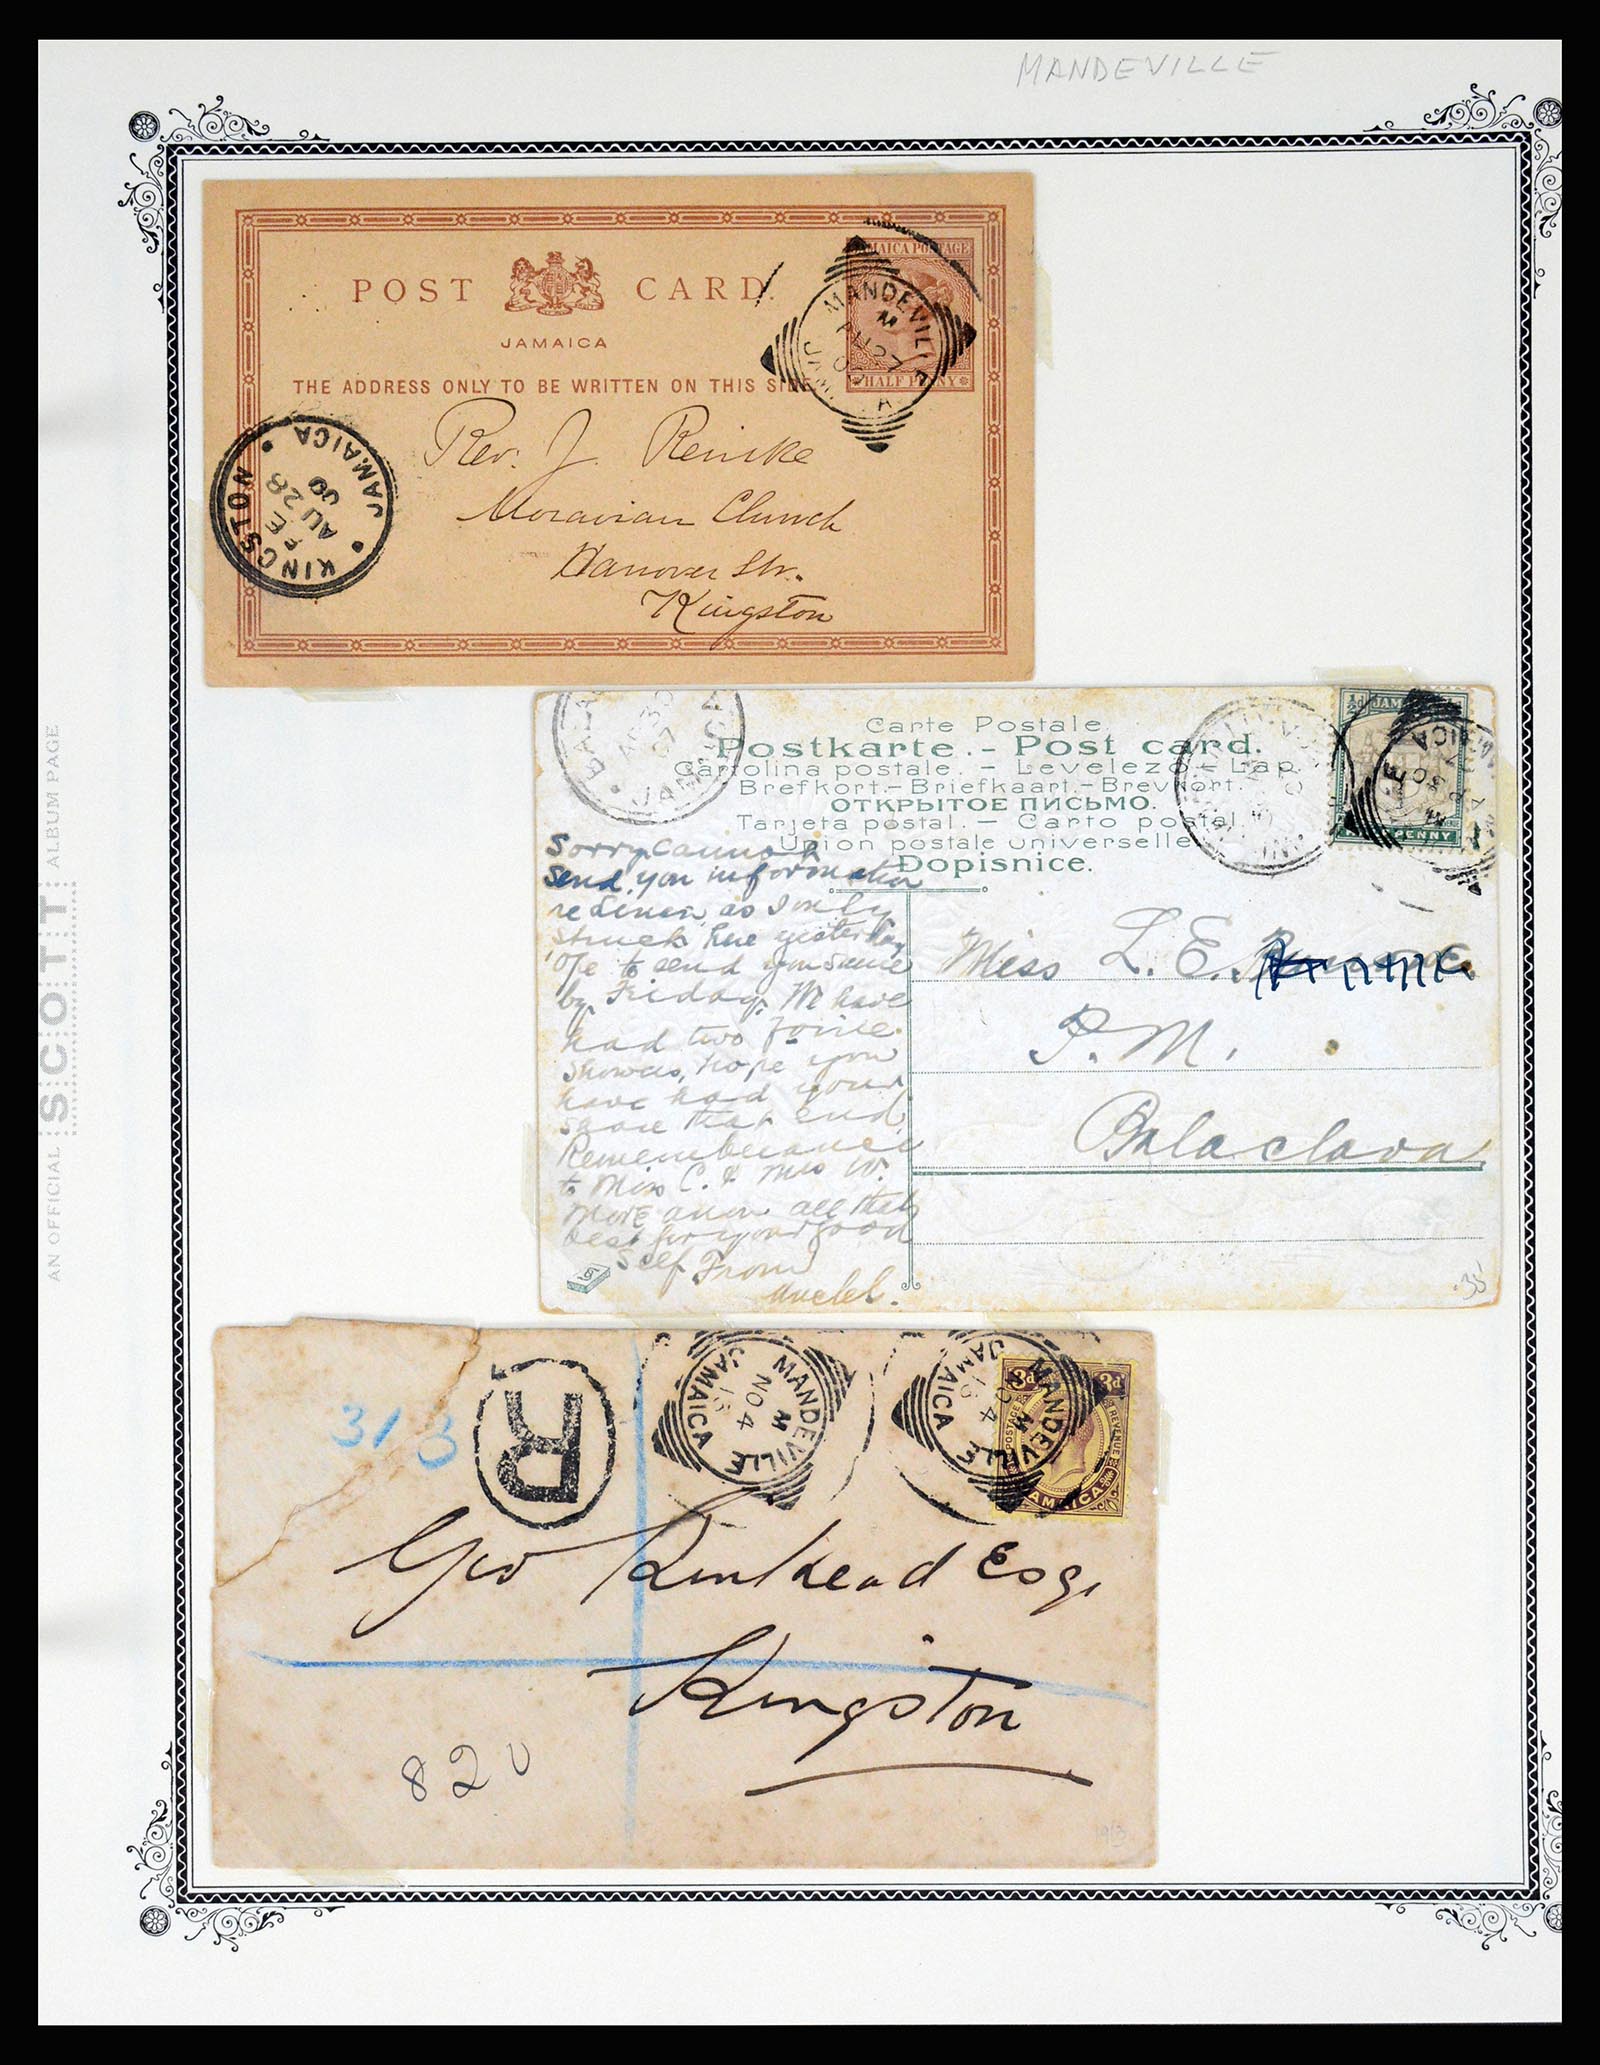 MANDEVILLE
POST CARD.
JAMAICA
THE ADDRESS ONLY TO BE WRITTEN ON THIS SIDE
JAMAICA POSTAGE
HALF PENNY
MANDEVILLE
KINGSTON JAMAICA
AU 28
00
Rev. J. Reinke
Moravian Church
Hanover Str.
Kingston
Carte Postale.
Postkarte. - Post card.
Cartolina postale. - Levelező - Lap
Brefkort.-Briefkaart.-Brevkort.
ОТКРЫТОЕ ПИСЬМО.
Tarjeta postal. - Carto postal.
Union postale universelle.
Dopisnice.
½d JAM
PENNY
Sorry cannot
send you information
as I only
struck here yesterday
to send you same
by Friday. We have
had two
showers, hope you
have had your
share that end.
Remembrance
to Miss C. & Miss W.
More anon all the
best for your good
Self From
Miss L. E.
P.M.
Balaclava
.35
AN OFFICIAL SCOTT ALBUM PAGE
313
R
MANDEVILLE JAMAICA
M
NO 4
13
MANDEVILLE JAMAICA
M
NO 4
13
3d 3d
POSTAGE & REVENUE
JAMAICA
Geo Kinkead Esq.
Kingston
820
1913